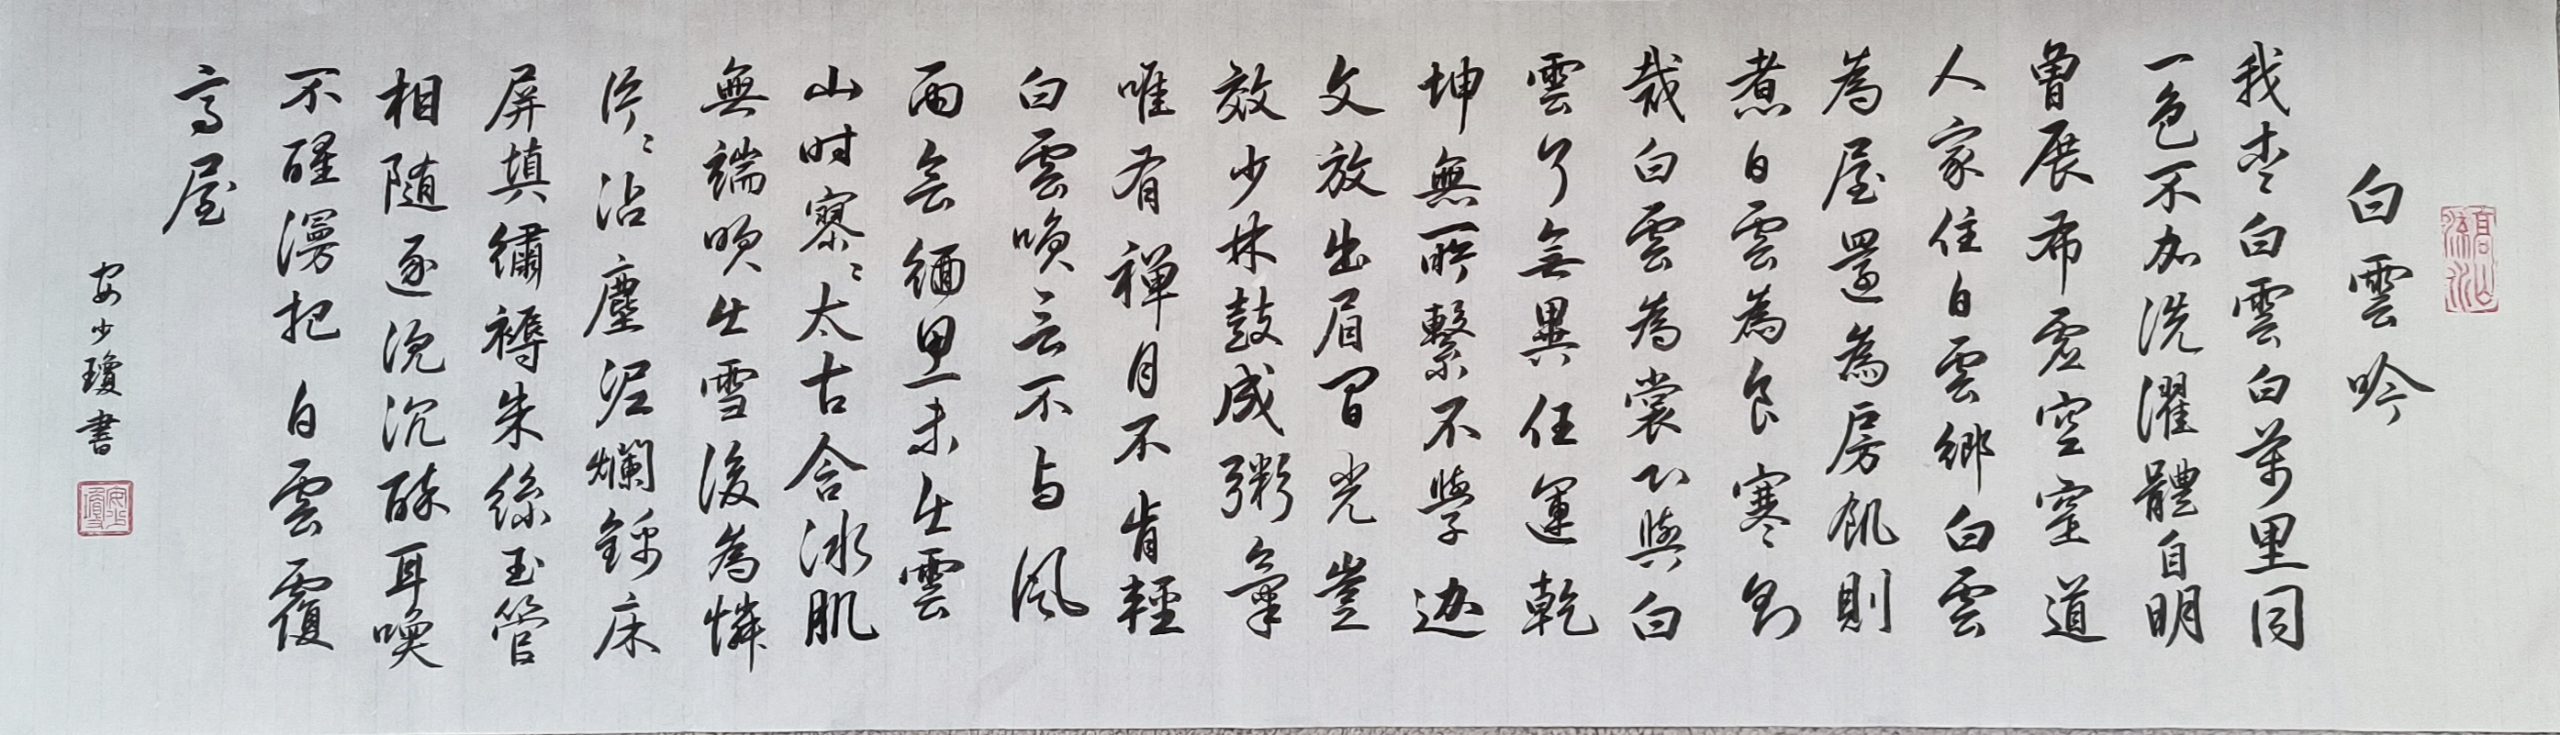 高山流水
白雲吟
我愛白雲白萬里同
一色不加洗濯體自明
曾展布虛空空室道
人家住白雲鄉白雲
為屋還為房飢則
煮白雲為食寒則
裁白雲為裳不與白
雲了無異任運乾
坤無所繫不學迦
文放出眉間光豈
效少林鼓成粥氣
唯有禪月不肯輕
白雲喚云不與風
雨會緬思未生雲
山時寥々太古含冰肌
無端吹生雪後為憐
片々沾塵泥爛錦床
屏填繡褥朱絲玉管
相隨逐沉沉醉耳喚
不醒漫把白雲覆
高屋
安少瓊書